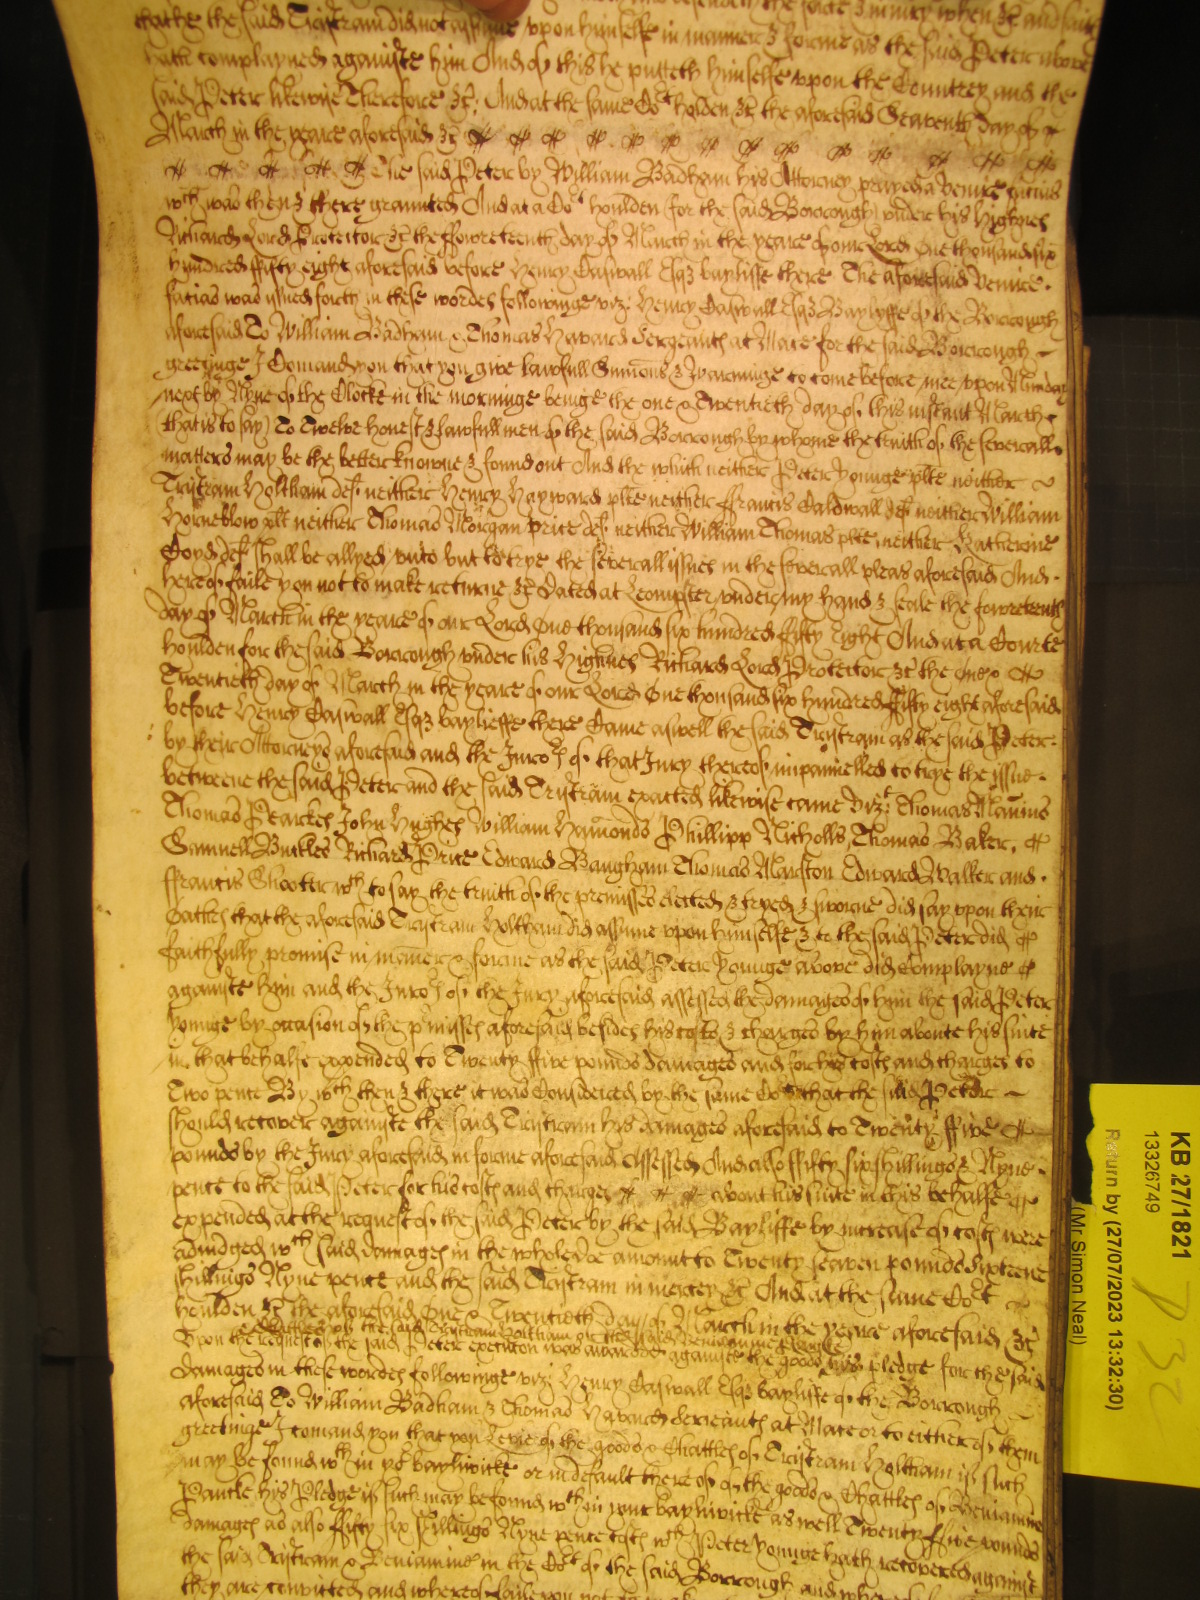 thatt he the said Tristram did not assume upon himselfe in manner & forme as the said Peter above
hath complayned againste him And of this he putteth himselfe upon the Countrey and the
said Peter likewise Therefore &c: And at the same Cot holden &c the aforesaid Seaventh day of
March in the yeare aforesaid &c
The said Peter by William Badham his Attorney prayed a Venire facias
wch was then & there graunted And at a Cot houlden for the said Borrough under his Highnes
Richard Lord Protector &c the fowreteenth day of March in the yeare of our Lord One thousand six
hundred fifty eight aforesaid before Henry Caswall Esqs baylisse there The aforesaid Venire
facias was issued forth in these wordes followinge vizt Henry Caswall Esqs Baylyffe of the Borrough
aforesaid To William Badham & Thomas Haward Sergeants at Mace for the said Borrough
greetinge I Comand you that you give lawfull Sumons & Warninge to come before mee upon Munday
next by Nyne of the Clocke in the morninge beinge the one & Twentieth day of this instant March
(that is to say) To Twelve honest & lawfull men of the said Borrough by whome the truth of the severall
matters may be the better knowne & found out And the which neither Peter Younge plte neither
Tristram Holtham deft neither Henry Hayward plte neither Francis Caldwall deft neither William
Horneblow plt neither Thomas Morgan Price deft neither William Thomas plte neither Katherine
Coyd deft shall be allyed unto but to trye the severall issues in the severall pleas aforesaid And
hereof faile you not to make returne &c Dated at Leompster under my hand & seale the fowreteenth
day of March in the yeare of our Lord One thousand six hundred fifty eight And at a Courte
houlden for the said Borrough under his Highnes Richard Lord Protector &c the one &
Twentieth day of March in the yeare of our Lord One thousand six hundred fifty eight aforesaid
before Henry Caswall Esqs baylieffe there Came aswell the said Tristram as the said Peter
by their Attorneys aforesaid and the Juros of that Jury thereof impannelled to trye the issue
betweene the said Peter and the said Tristram exacted likewise came vizt Thomas Manns
Thomas Pearckes John Hughes William Hamonds Phillipp Nicholls, Thomas Baker,
Samuell Buckles Richard Price Edward Baugham Thomas Marston Edward Walker and
Francis Shooter wch to say the truith of the premisses elected & tryed & sworne did say upon their
Oathes that the aforesaid Tristram Holtham did assume upon himselfe & to the said Peter did
faithfully promise in manner & forme as the said Peter Younge above did Complayne
againste him and the Juros of the Jury aforesaid assessed the damages of him the said Peter
Younge by occasion of the pmisses aforesaid besides his costs & charges by him aboute his suite
in that behalfe expended to Twenty five pounds damages and for his costs and charges to
Two pence By wch then & there it was Considered by the same Cot that the said Peter
should recover againste the said Tristram his damages aforesaid to Twenty five
pounds by the Jury aforesaid in forme aforesaid Assessed And also fifty six shillings & Nyne
pence to the said Peter for his costs and charges about his suite in this behalfe
expended at the request of the said Peter by the said Bayliffe by increase of costs were
adiudged wch said damages in the whole doe amount to Twenty seaven pounds Sixteene
shillings Nyne pence and the said Tristram in mercy &c And at the same Cot
houlden &c the aforesaid One & Twentieth day of March in the yeare aforesaid &c
Upon the request of the said Peter execution was awarded against the goods his pledge for the said
damages in these wordes followinge vizt Henry Caswall Esqs bayliffe of the Borrough
aforesaid To William Badham & Thomas Haward Serieants at Mace or to either of them
greetinge I comand you that you Levie of the goods & Chattles of Tristram Holtham if such
may be found wth in yor bayliwicke or in default thereof of the goods & Chattles of Beniamine
Pantle his Pledge if such may be found wth in your bayliwicke as well Twenty five pounds
damages as also fifty six shillings Nyne pence costs wch Peter Younge hath recovered against
the said Tristram & Beniamine in the Cot of the said Borrough and
they are convicted and whereof faile you not
KB 27/1821
13326749
Return by (27/07/2023 13:32:30)
(Mr Simon Neal)
P32